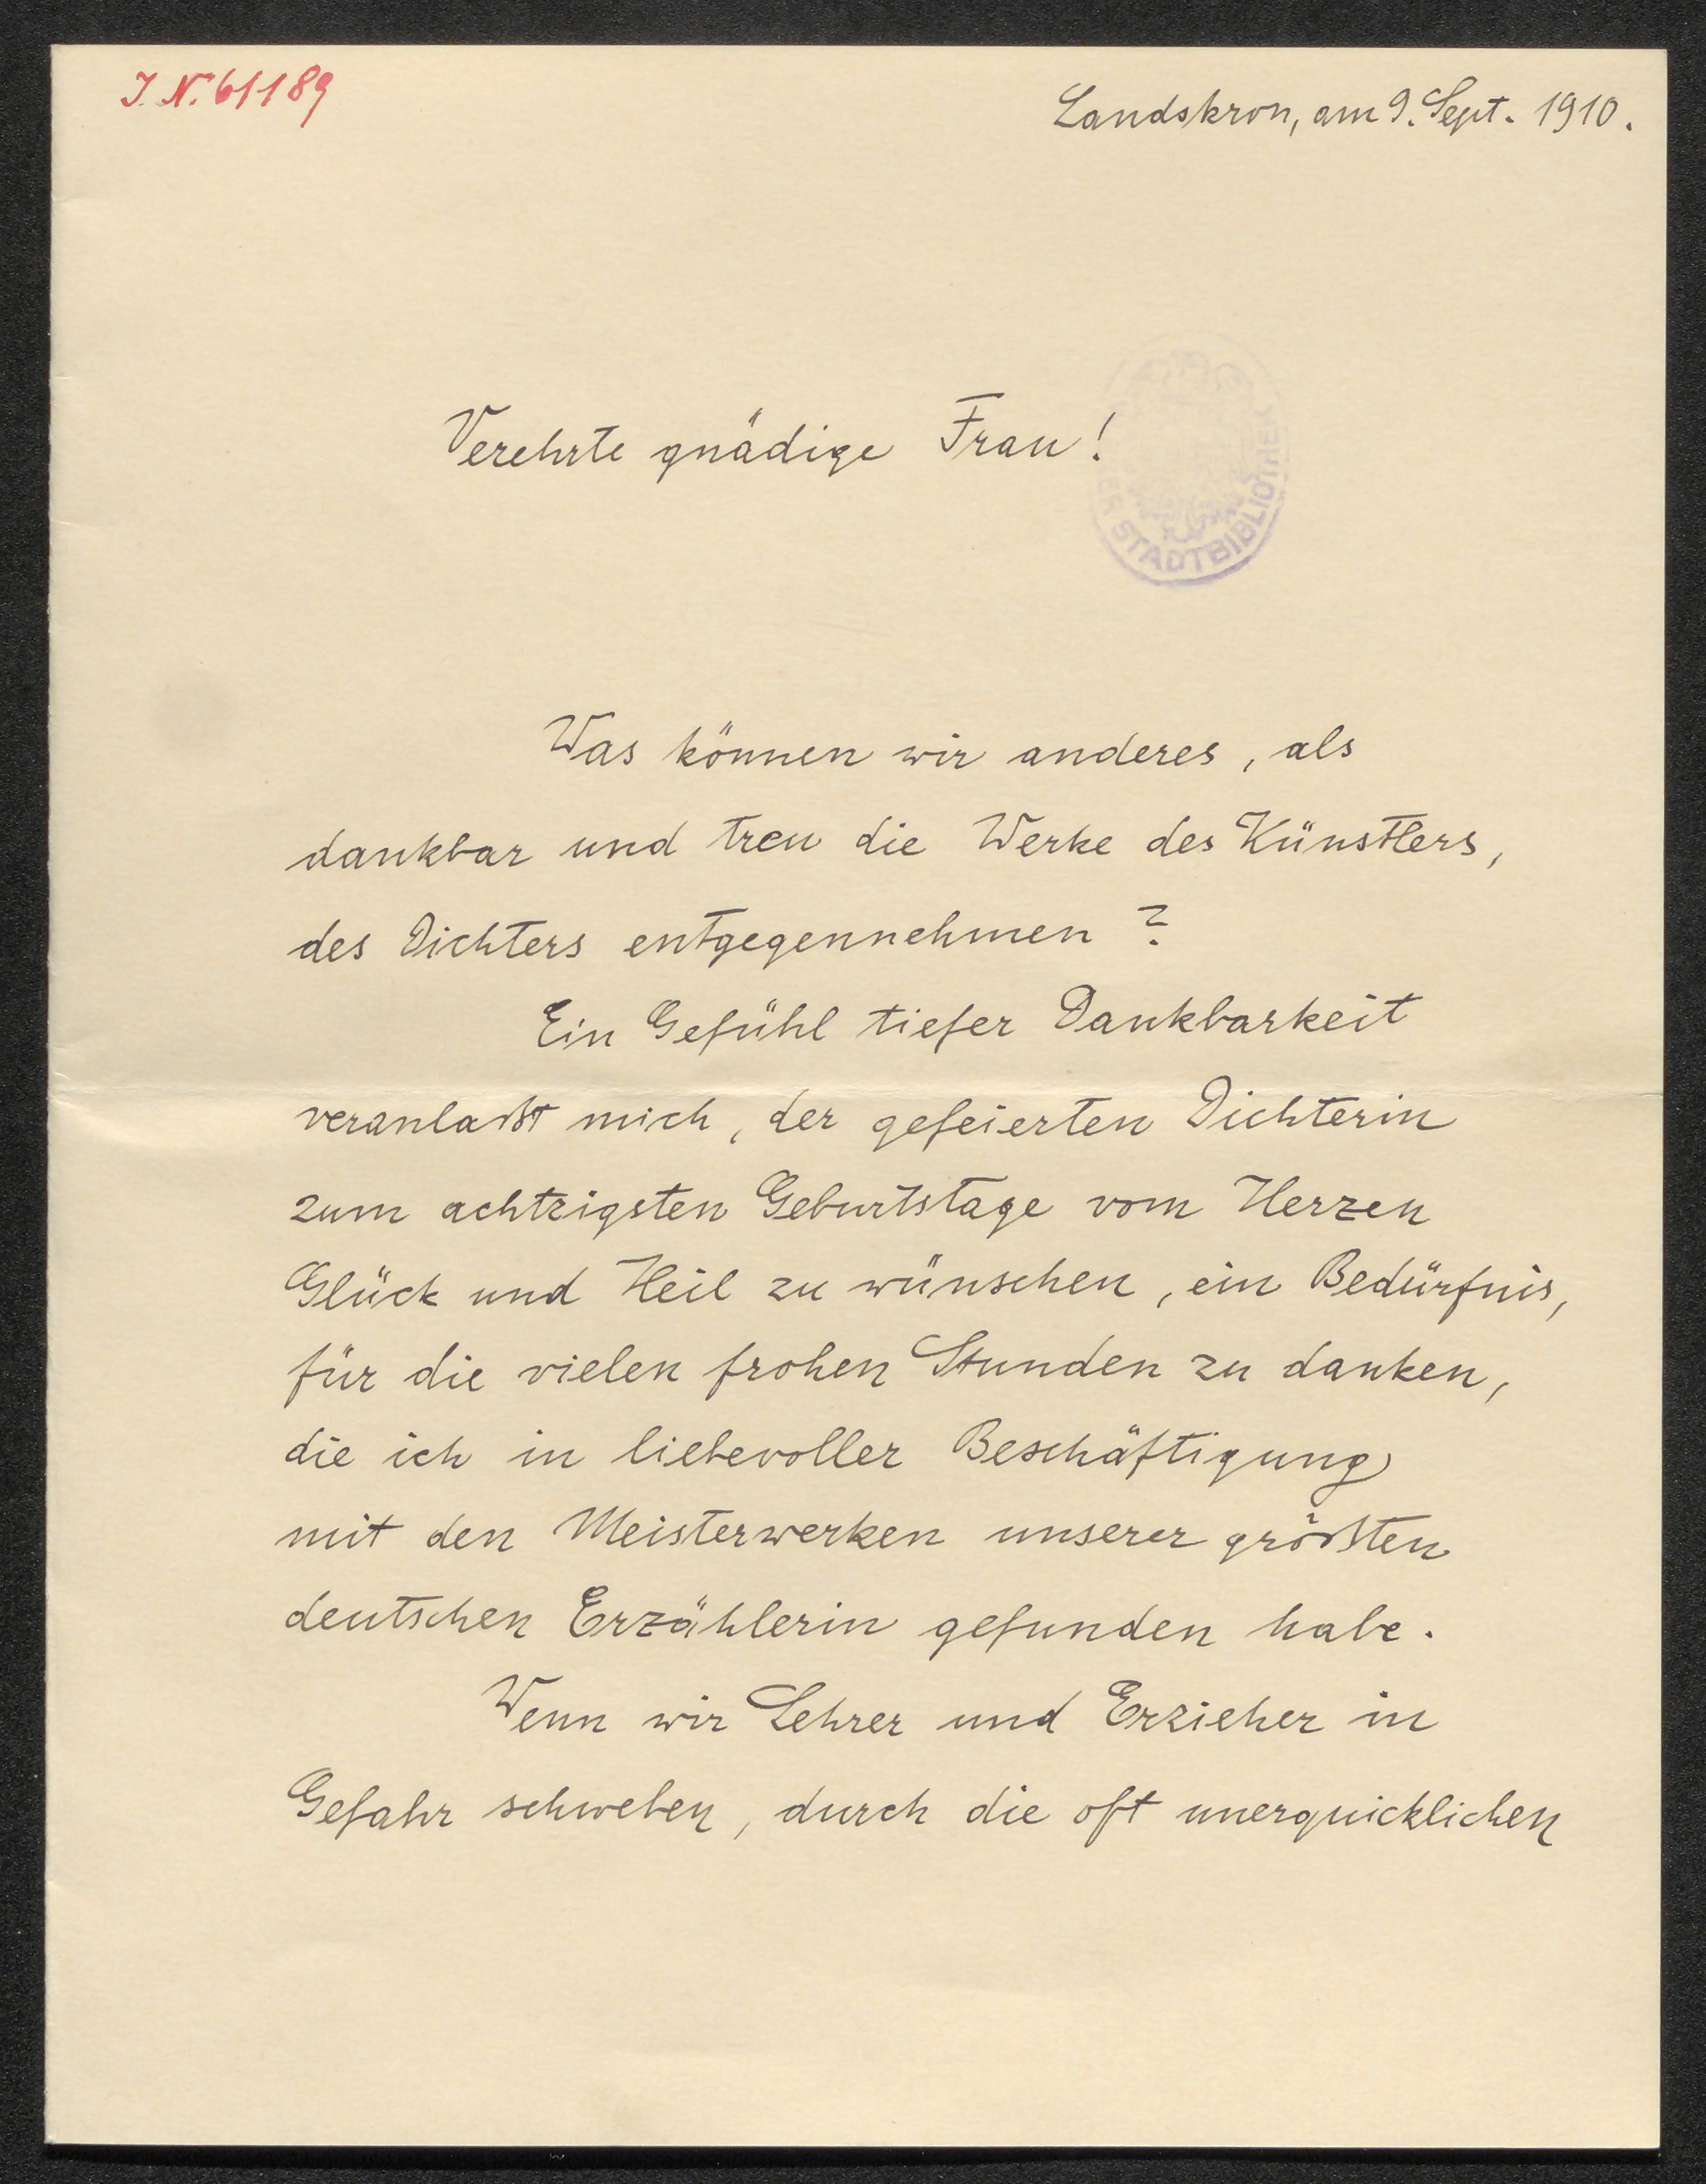 J. N. 61189
Landskron, am 9. Sept. 1910.
Verehrte gnädige Frau!
STADTBIBLIOTHEK
Was können wir anderes, als
dankbar und treu die Werke des Künstlers,
des Dichters entgegennehmen?
Ein Gefühl tiefer Dankbarkeit
veranlaßt mich, der gefeierten Dichterin
zum achtzigsten Geburtstage vom Herzen
Glück und Heil zu wünschen, ein Bedürfnis,
für die vielen frohen Stunden zu danken,
die ich in liebevoller Beschäftigung
mit den Meisterwerken unserer größten
deutschen Erzählerin gefunden habe.
Wenn wir Lehrer und Erzieher in
Gefahr schweben, durch die oft unerquicklichen